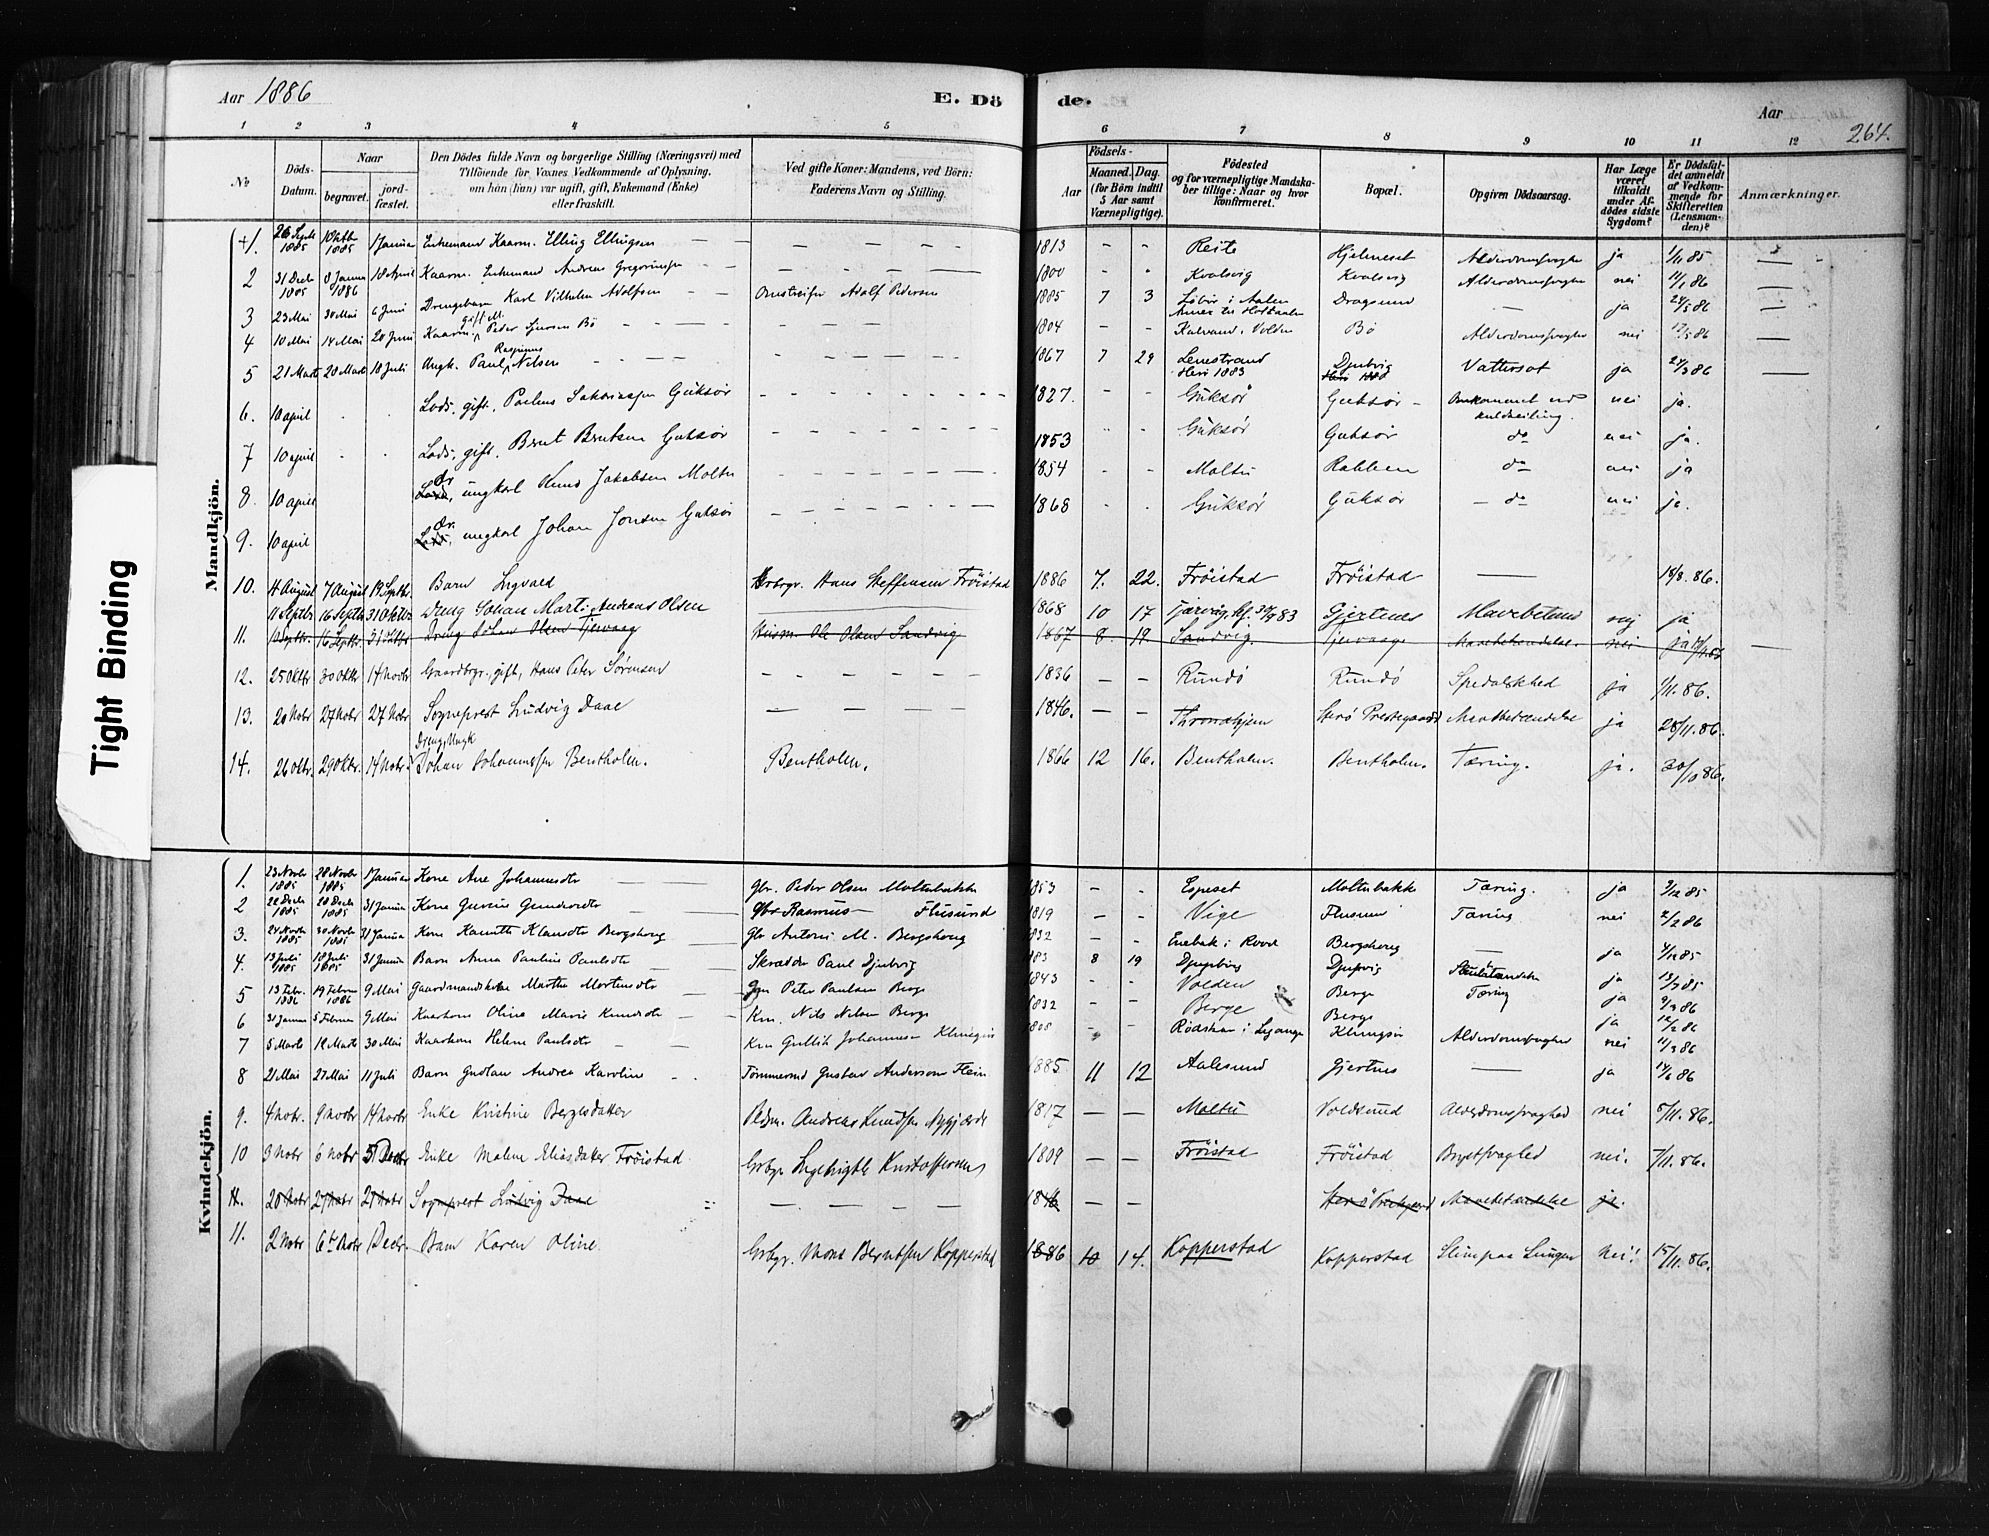 Aar 1886
E. Dö
de.
Aar
264.
1 2 3 4 5 6 7 8 9 10 11 12
No
Döds-Datum.
Naar
begravet.
jord-fæstet.
Den Dödes fulde Navn og borgerlige Stilling (Næringsvei) med
Tilföiende for Voxnes Vedkommende af Oplysning,
om han (hun) var ugift, gift, Enkemand (Enke)
eller fraskilt.
Ved gifte Koner: Mandens, ved Börn:
Faderens Navn og Stilling.
Födsels-
Aar
Maaned. Dag.
(for Börn indtil
5 Aar samt
Værnepligtige).
Födested
og for værnepligtige Mandska-
ber tillige: Naar og hvor
konfirmeret.
Bopæl.
Opgiven Dödsaarsag.
Har Læge
været
tilkaldt
under Af-
dödes sidste
Sygdom?
Er Dödsfal-
det anmeldt
af Vedkom-
mende for
Skifteretten
(Lensman-
den)?
Anmærkninger.
Mandkjön.
1. 26 Septb 1885 1 Oktbr 1885 1 Januar Enkemand Kaarm. Elling Ellingsen — — — — 1813 - - Reite Hjelmeset Alderdomssvaghed ja 1/11 85
2 31 Decbr 1885 8 Januar 1886 18 April Kaarm. Enkemand Andreas Gregoriussen — — — — 1800 - - Kvalsvig Kvalsvig Alderdomssvaghed nei 11/1 86
3 23 Mai 30 Mai 6 Juni Drengebarn Karl Vilhelm Adolfsen — — Omstreifer Adolf Pedersen 1885 7 3 Aalen Annex til Holtaalen Dragsund — ja 24/5 86
4 10 Mai 14 Mai 20 Juni Kaarm. gift M. Peder Sjursen Bø — — — 1804 - - Volden Bø Alderdomssvaghed nei 17/5 86
5 21 Marts 28 Marts 18 Juli Ungk. Paul Rasmus Nilsen — — — 1867 7 29 Lenestrand Herø 1883 Djubvig Herø 1880 Vattersot ja 27/3 86
6. 10 april Lods, gift, Paulus Sakariassen Guksør 1827. - - Guksør Guksør - Omkommet ved kuldseiling. nei ja.
7 10 april Lods, gift, Brut Brutsen Guksør 1853 Guksør Guksør do nei ja.
8. 10 april Lods dr, ungkarl Knud Jakobsen Moltu 1854 - - Moltu do nei ja
9. 10 april Lods dr. ungkarl Johan Jonsen Guksør 1868 - - Guksør Guksør - do nei ja.
10. 4 August 7 August 19 Septbr. Barn Ingvald Hans Steffensen Frøistad 1886 7. 22. Frøistad Frøistad — 18/8. 86.
11 Septbr 16 Septbr 31 Oktbr Dreng Johan Martin Andreas Olsen 1868 10 17 83 Gjertnes nej ja
11. 11 Septbr. 16 Septbr. 31 Oktbr Dreng Johan Olsen Tjervaag Husm. Ole Olsen Sandvig 1867 8. 19. Sandvig. Tjervaag Mavebetændelse. nei ja —
12. 25 Oktbr 30 Oktbr 14 Novbr Gaardbrgr. gift, Hans Peter Sørensen — — — 1836 — — Rundø Rundø Spedalskhed ja 1/11. 86.
13. 20 Nobr 27 Nobr 27 Nobr Sogneprest Ludvig Daae — — — 1846. — — Throndhjem Herø Prestegaard Mavebetændelse ja 28/11. 86.
Dreng, Ungk
14. 26 Oktbr. 29 Oktbr. 14 Nobr. Johan Johannessen Bentholen. Bentholen. 1866 12 16. Bentholen. Bentholen. Tæring. ja. 30/10 86.
Kvindekjön.
1. 23 Novbr 1885 28 Novbr 1885 1 Januar Kone Ane Johannesdtr — — Gbr. Peder Olsen Moltubakke 1853 - - Espeset Moltubakk Tæring. ja 3/12 85
2 22 Decbr 1885 28 Decbr 1885 31 Januar Kone — — Gbr Rasmus Flusund 1819 - - Vige Flusund Tæring nei 2/2 86
3. 24 Novbr 1885 30 Novbr 1885 31 Januar Kone Klausdtr Bergshoug — Gbr Antoni M. Bergshoug 1832 - - Bergshoug — ja 4/12 85
4. 13 Juli 1885 18 Juli 1885 31 Januar Barn Anna Pauline Paulsdtr — Skrædder Paul Djubvig 8 19 Djupvig Djupvig ja 13/7 85
5 13 Febr. 1886 19 Februar 1886 9 Mai Gaardmandskone Marthe Mortensdtr — — Peter Paulsen Berge 1843 - - Volden Berge Tæring ja 9/3 86
6 31 Januar 5 Februar 9 Mai Kaarkone Oline Marie Knudsdtr — — Km. Nils Nilsen Berge 1832 - - Berge Berge ja 12/2 86
7 5 Marts 12 Marts 30 Mai Kaarkone Helene Paulsdtr — — Km Gullik Johannessen Klungsør 1805 - - Klungsør Alderdomssvaghed nei 11/3 86
8 21 Mai 27 Mai 11 Juli Barn Andrea Karoline - - Tømmermd Gustav Anderson Flein 1885. 11 12 Aalesund Gjertnes — ja 14/6 86
9. 4 Nobr. 9 Novbr 14 Novbr Enke Kristine Andreas Knudsen Nygjærde 1817 — — Moltu Voldsund Alderdomssvaghed nei 5/11. 86.
10 3 Nobr 6 Nobr 5 Decbr Enke Malene Eliasdatter Frøistad Grbgr Ingebrigt Kristoffersen 1809 — — Frøistad Frøistad Brystsvaghed nei. 7/11. 86.
11. 20 Nobr 27 Nobr 27 Nobr Sogneprest Ludvig Daae — — — — 1846 — — Herø Prestegaard Mavebetændelse ja.
11. 2 Nobr 6te Nobr Decbr. Barn Karen Oline Grbgr. Mons Berntsen Kopperstad 1886 10 14. Kopperstad Kopperstad Slimpaa Lungen nei! 15/11. 86.
Tight Binding